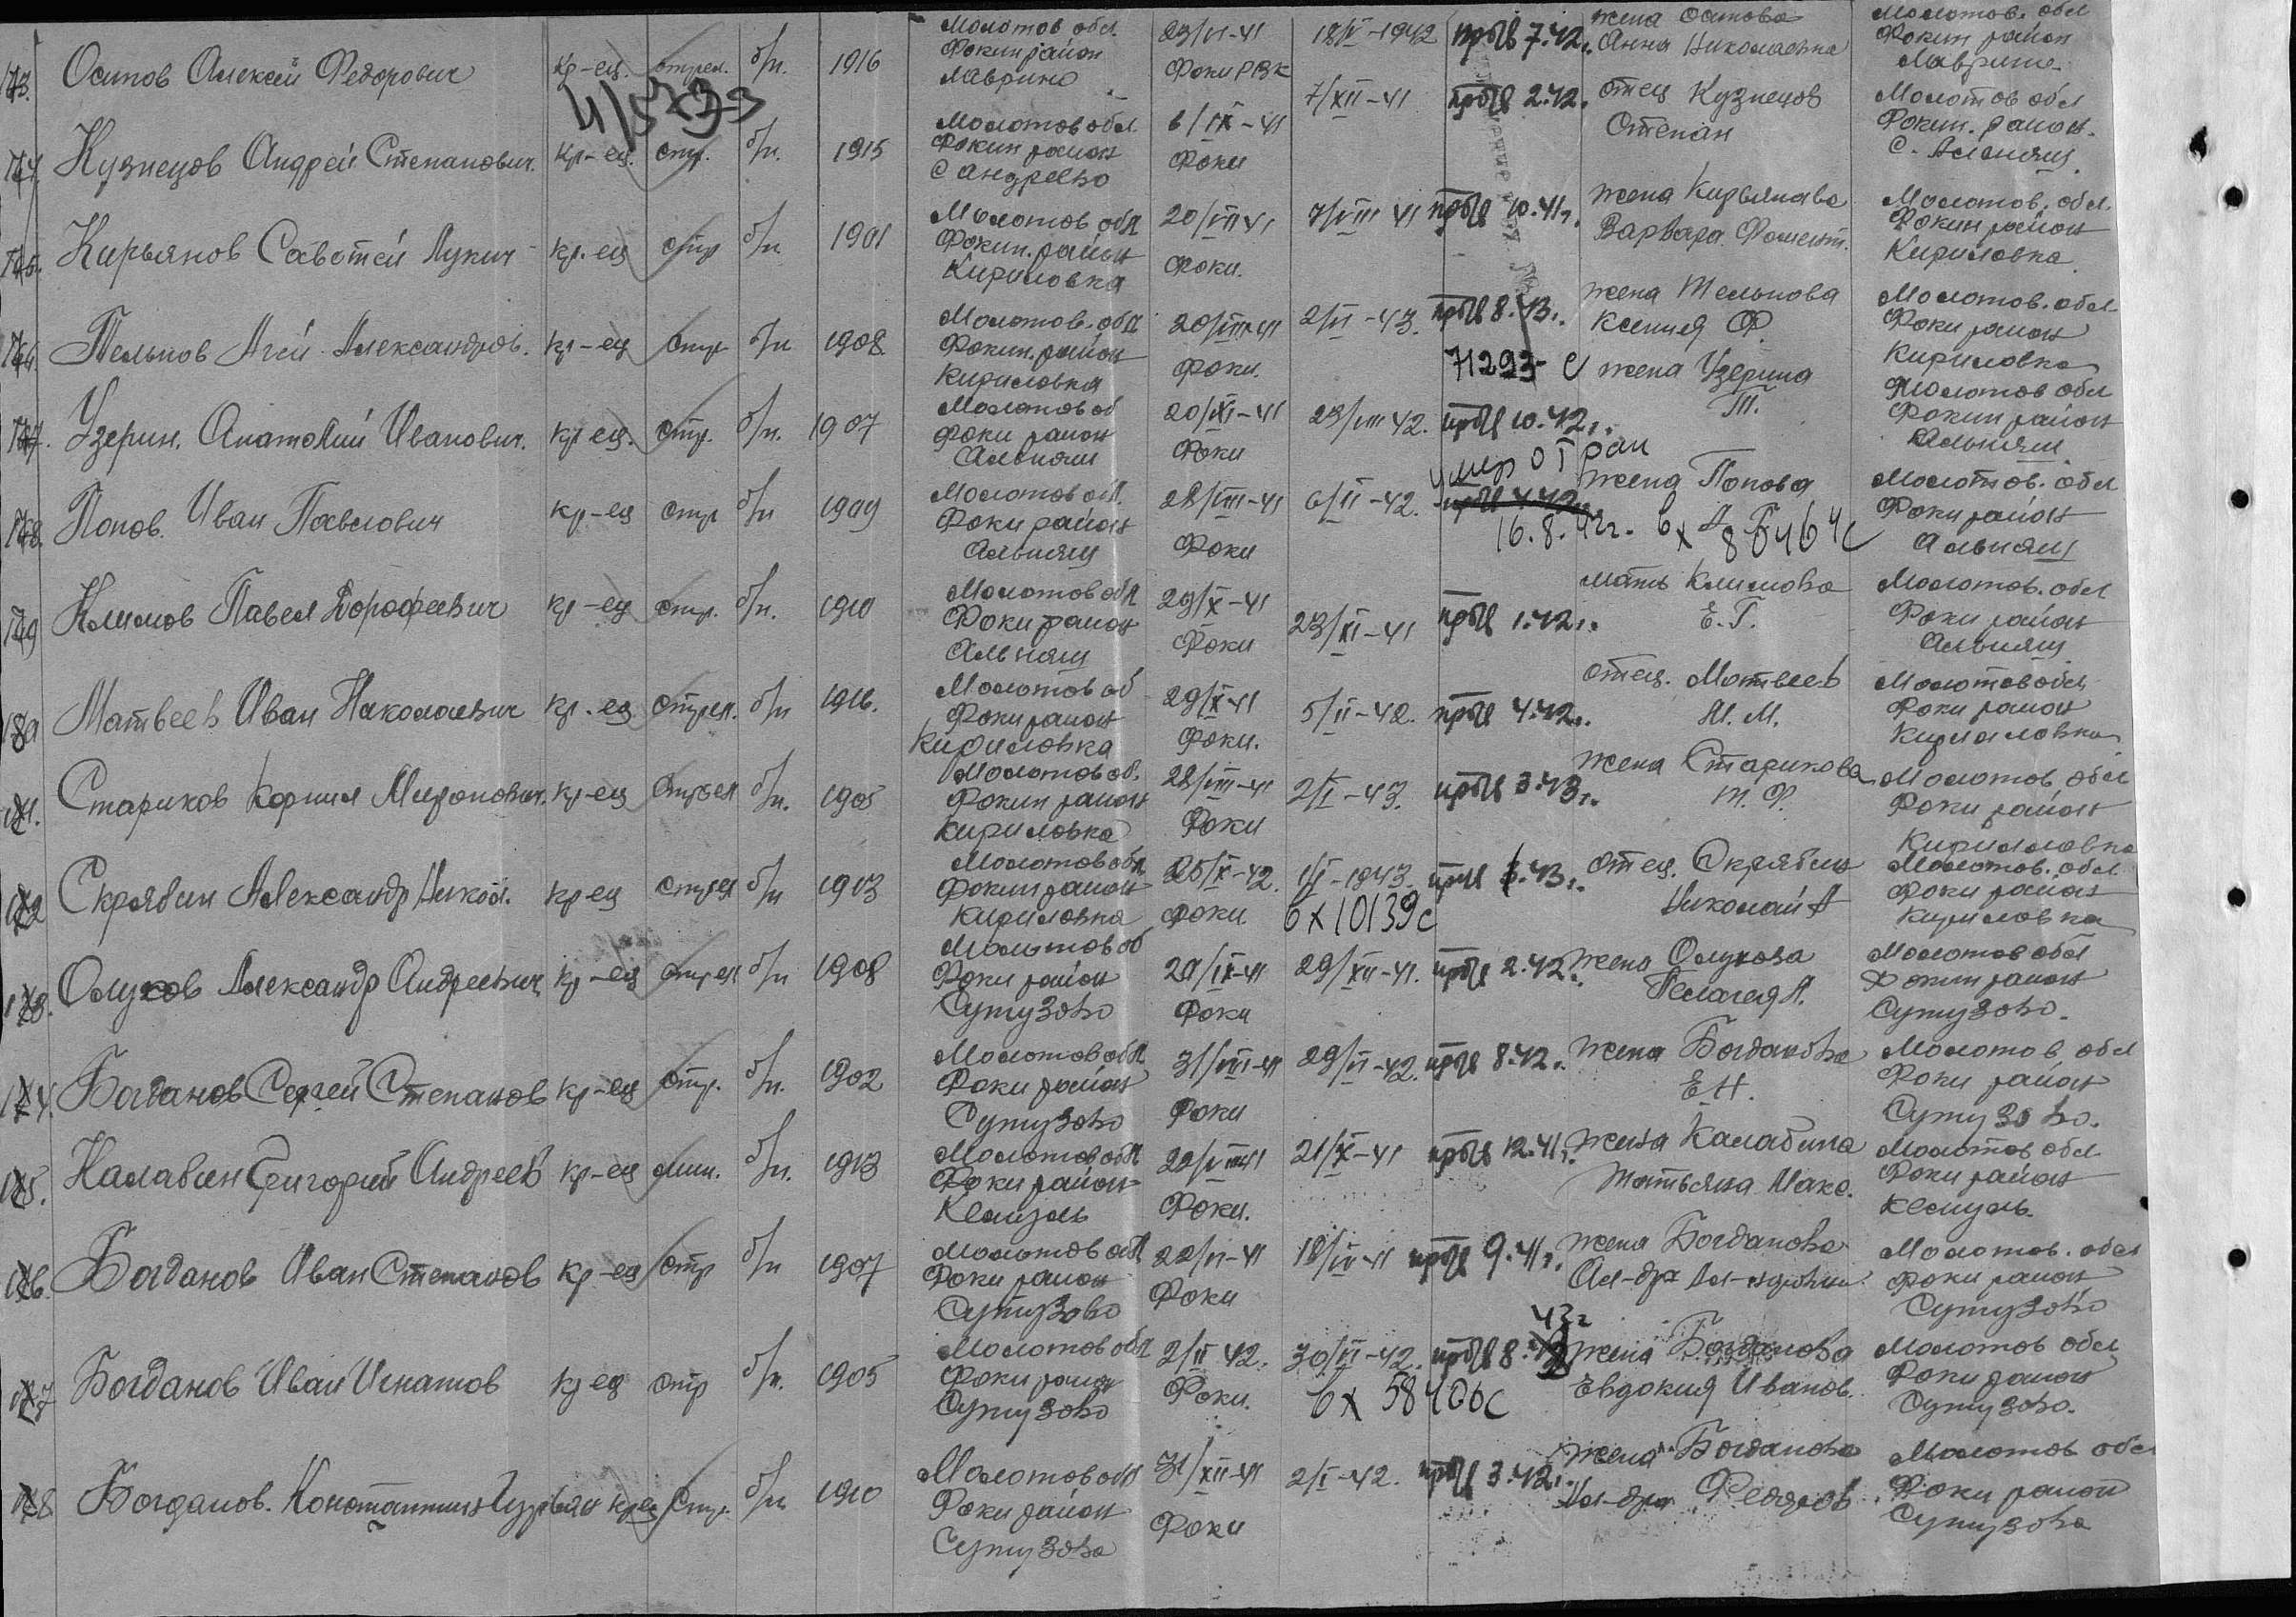 Осипов Алексей Федорович кр-ец. стрел. б/п. 1916 Молотов обл. Фокин район Лаврино 23/VI-41 Фоки РВК 18/V-1942 проп 7.42г. жена Осипова Анна Николаевна Молотов. обл Фокин район Лаврино
4/5793
174. Кузнецов Андрей Степанович. кр-ец. стр. б/п. 1915 Молотов обл. Фокин район с Андреево 6/IX-41 Фоки 7/XII-41 проп 2.42г. отец Кузнецов Степан Молотов обл Фокин. район. с. Альняш.
175. Кирьянов Савотей Лукич кр.ец стр б/п. 1901 Молотов обл Фокин. район Кириловка 20/VII 41 Фоки. 7/VIII 41 проп 10.41г. жена Кирьянова Варвара Молотов. обл. Фокин район Кириловка
176. Тельнов Агей Александров. кр-ец стр б/п 1908. Молотов. обл Фокин. район Кириловка 20/VIII-41 Фоки. 2/VI-43. проп 8.43г. жена Тельнова Ксения Ф. Молотов. обл. Фоки район Кириловка
71293 с
177. Узерин. Анатолий Иванович. кр.ец. стр. б/п. 1907 Молотов об Фоки район Альняш 20/XI-41 Фоки 23/VIII 42. проп 10.42г. жена Узерина Т. Молотов обл Фокин район Альняш
178. Попов. Иван Павлович кр-ец стр б/п 1909 Молотов обл. Фоки район Альняш 28/VIII-41 Фоки 6/II-42. проп 4.42г. умер от ран 16.8.42г. вх жена Попова А Молотов. обл Фоки район Альняш
179 Климов Павел Дорофеевич кр-ец стр. б/п. 1910 Молотов обл Фоки район Альняш 29/X-41 Фоки 23/XI-41 проп 1.42г. мать Климова Е. Г. Молотов. обл Фоки район Альняш
180 Матвеев Иван Николаевич кр.ец. стрел. б/п 1916. Молотов об Фоки район Кириловка 29/X 41 Фоки. 5/II-42. проп 4.42г. отец. Матвеев Н. М. Молотов обл Фоки район Кириловка
181. Стариков Корнил Миронович. кр-ец стрел б/п. 1905 Молотов об. Фокин район Кириловка 28/VIII-41 Фоки 2/I-43. проп 3.43г. жена Старикова Т. Ф. Молотов обл Фоки район Кирилловка
182 Скрябин Александр Никол. кр ец стрел б/п 1913 Молотов обл Фокин район Кириловка 25/X-42. Фоки. 1/I-1943. проп 3.43г. отец. Скрябин Николай А Молотов. обл Фоки район Кириловка
вх 10139с
183. Олухов Александр Андреевич кр-ец стрел б/п 1908 Молотов об Фоки район Сутузово 20/IX-41 Фоки 29/XII-41. проп 2.42г. жена Олухова Пелагея А. Молотов обл Фокин район Сутузово.
184. Богданов Сергей Степанов кр-ец стр. б/п. 1902 Молотов обл Фоки район Сутузово 31/VIII-41 Фоки 29/VI-42. проп 8.42г. жена Богданова Е. Н. Молотов обл Фоки район Сутузово.
185. Калабин Григорий Андреев кр-ец мин. б/п. 1913 Молотов обл Фоки район 22/VIII 41 Фоки. 21/X-41 проп 12.41г. жена Калабина Татьяна Мако. Молотов обл Фоки район
186. Богданов Иван Степанов кр-ец стр б/п 1907 Молотов обл Фоки район Сутузово 22/VI-41 Фоки 18/IV-41 проп 9.41г. жена Богданова Ал-дра Молотов. обл Фоки район Сутузово
43г
187 Богданов Иван Игнатов кр ец стр б/п. 1905 Молотов обл Фоки район Сутузово 2/II 42. Фоки. 30/VI-42. проп 8. жена Богданова Евдокия Иванов. Молотов обл Фоки район Сутузово.
вх 58406с
188 Богданов. Константин кр ец стр. б/п 1910 Молотов обл Фоки район Сутузово 31/XII-41 Фоки 2/I-42. проп 3.42г. жена Богданова Ал-дра Федоров Молотов обл Фоки район Сутузово